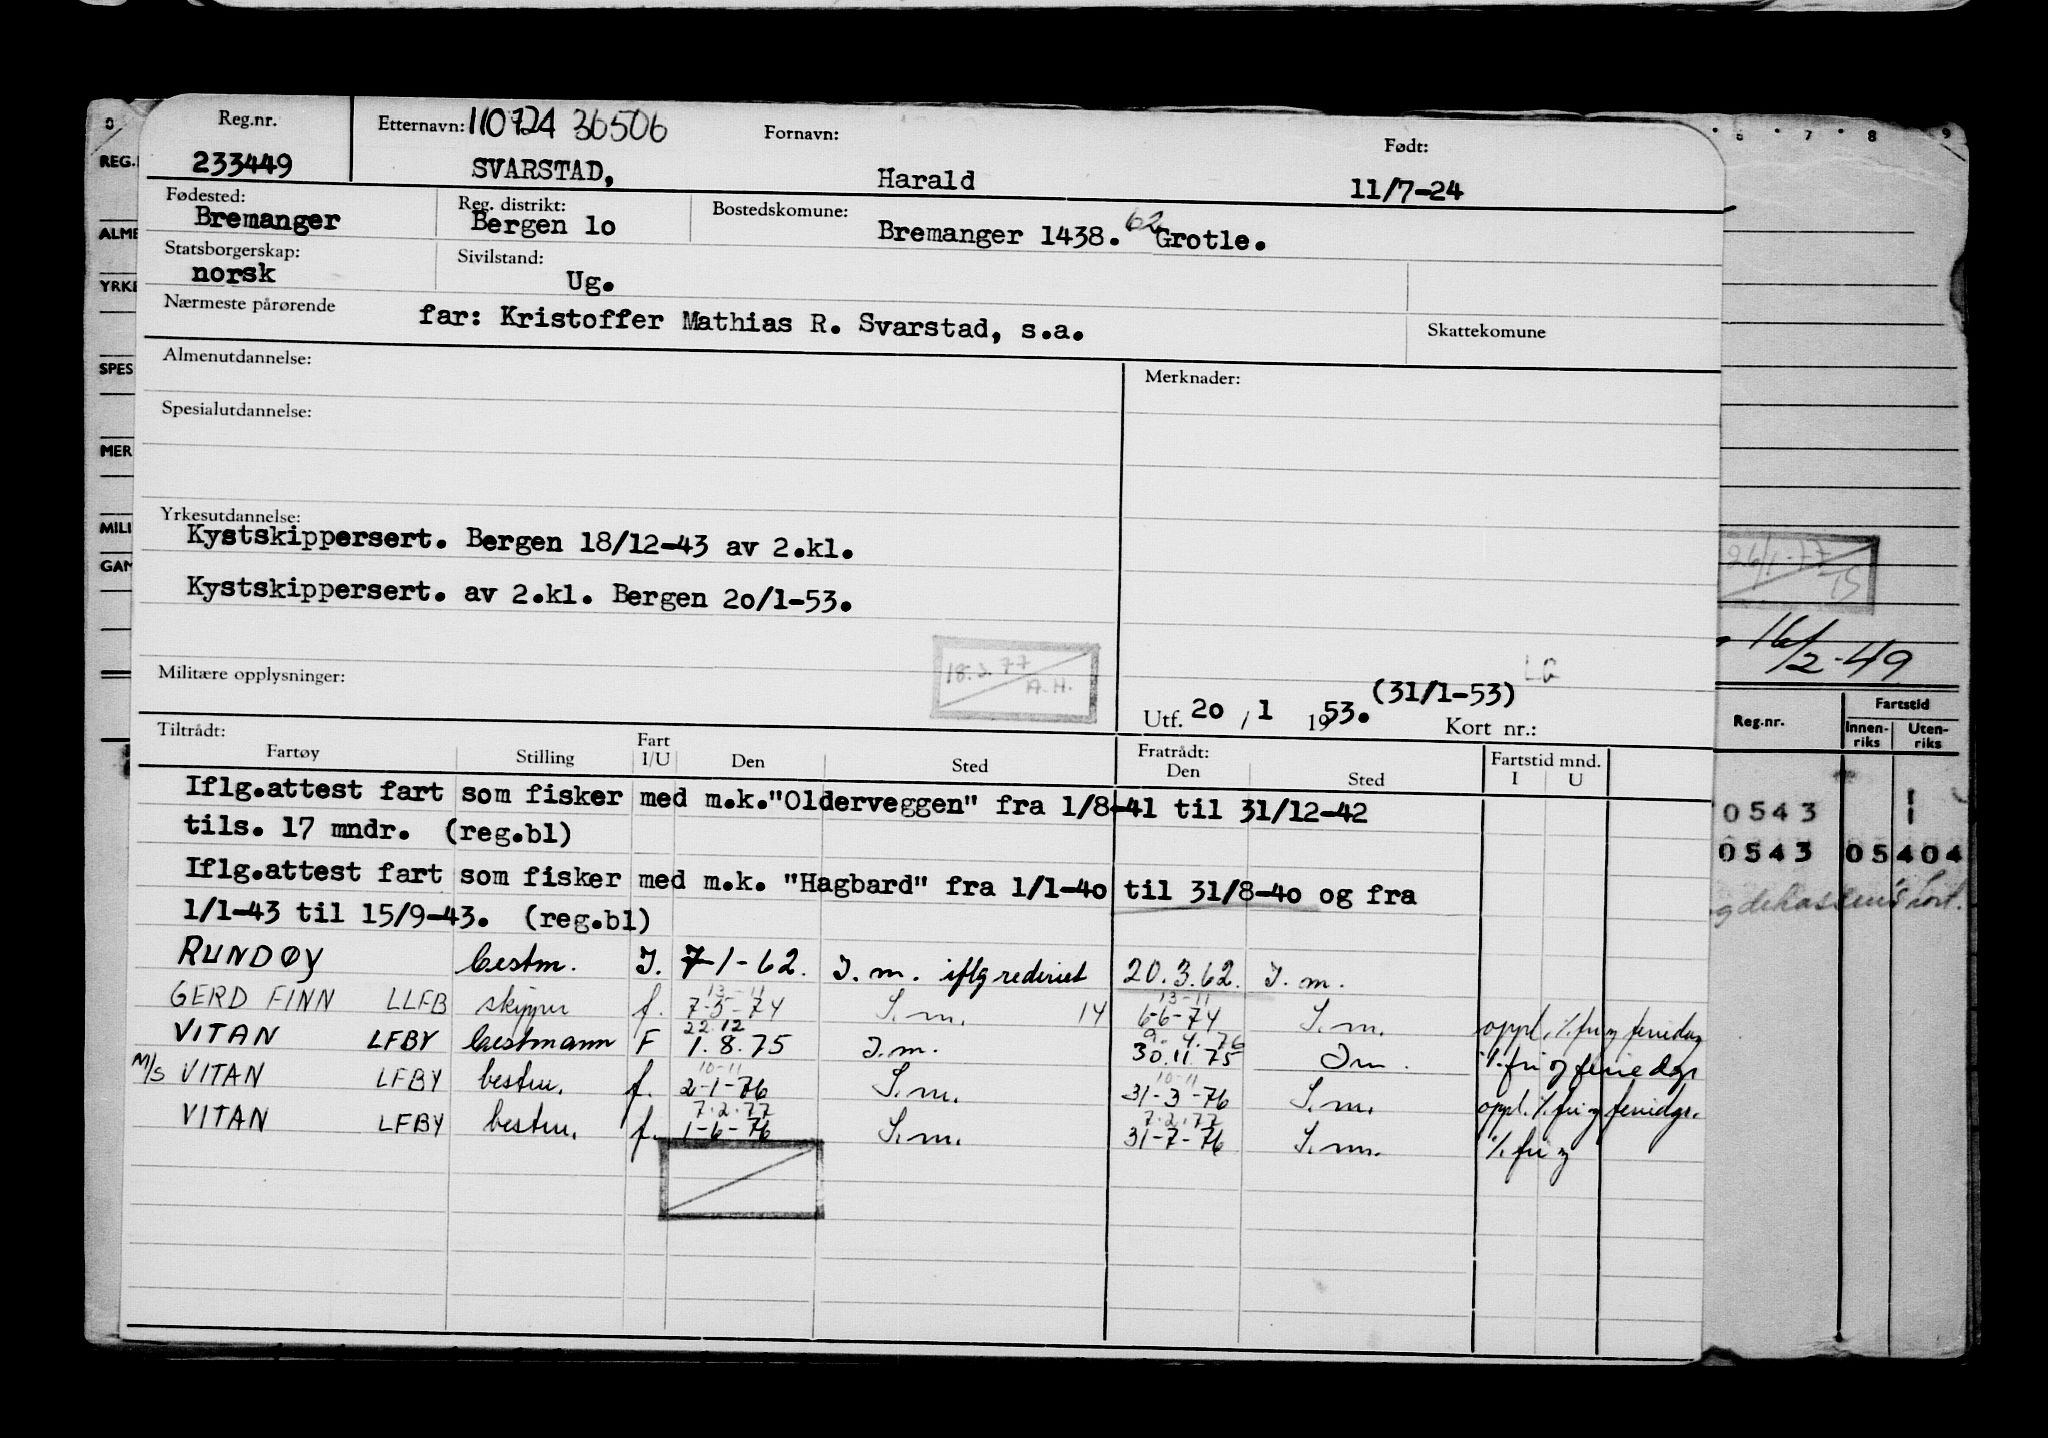 Reg.nr. Etternavn: 110724 36506 Fornavn: Født:
233449 SVARSTAD, Harald 11/7-24
Fødested: Reg. distrikt: Bostedskomune:
Bremanger Bergen 1o Bremanger 1438. 62 Grotle.
Statsborgerskap: Sivilstand:
norsk Ug.
Nærmeste pårørende far: Kristoffer Mathias R. Svarstad, s.a. Skattekomune
Almenutdannelse: Merknader:
Spesialutdannelse:
Yrkesutdannelse:
Kystskippersert. Bergen 18/12-43 av 2.kl.
Kystskippersert. av 2.kl. Bergen 2o/1-53.
Militære opplysninger: 18.3.77 A.H.
LG
(31/1-53)
Utf. 2o / 1 1953. Kort nr.:
Tiltrådt: Fratrådt:
Fartøy Stilling Fart I/U Den Sted Den Sted Fartstid mnd. I U
Iflg.attest fart som fisker med m.k."Olderveggen" fra 1/8-41 til 31/12-42
tils. 17 mndr. (reg.bl)
Iflg.attest fart som fisker med m.k. "Hagbard" fra 1/1-4o til 31/8-4o og fra
1/1-43 til 15/9-43. (reg.bl)
RUNDØY bestm. I. 7-1-62. I.m. iflg rederiet 20.3.62. I.m.
13-11 13-11
GERD FINN LLFB skipper f. 7-3-74 S.m. 14 6-6-74 S.m. oppl. %. fri og feriedag
22.12 9.4.76
VITAN LFBY bestmann F 1.8.75 I.m. 30.11.75 Im. %. fri og feriedgr
10-11 10-11
M/S VITAN LFBY bestm. f. 2-1-76 S.m. 31-3-76 S.m. oppl. %. fri og feriedgr.
7.2.77 7.2.77
VITAN LFBY bestm. f. 1-6-76 S.m. 31-7-76 S.m. %. fri og
REG.
ALME
YRKE
SPES
MER
MILI
GAN
6 7 8 9
26/1-77
16/2-49
Reg.nr. Fartstid
Innen-riks Uten-riks
0543
0543 05404